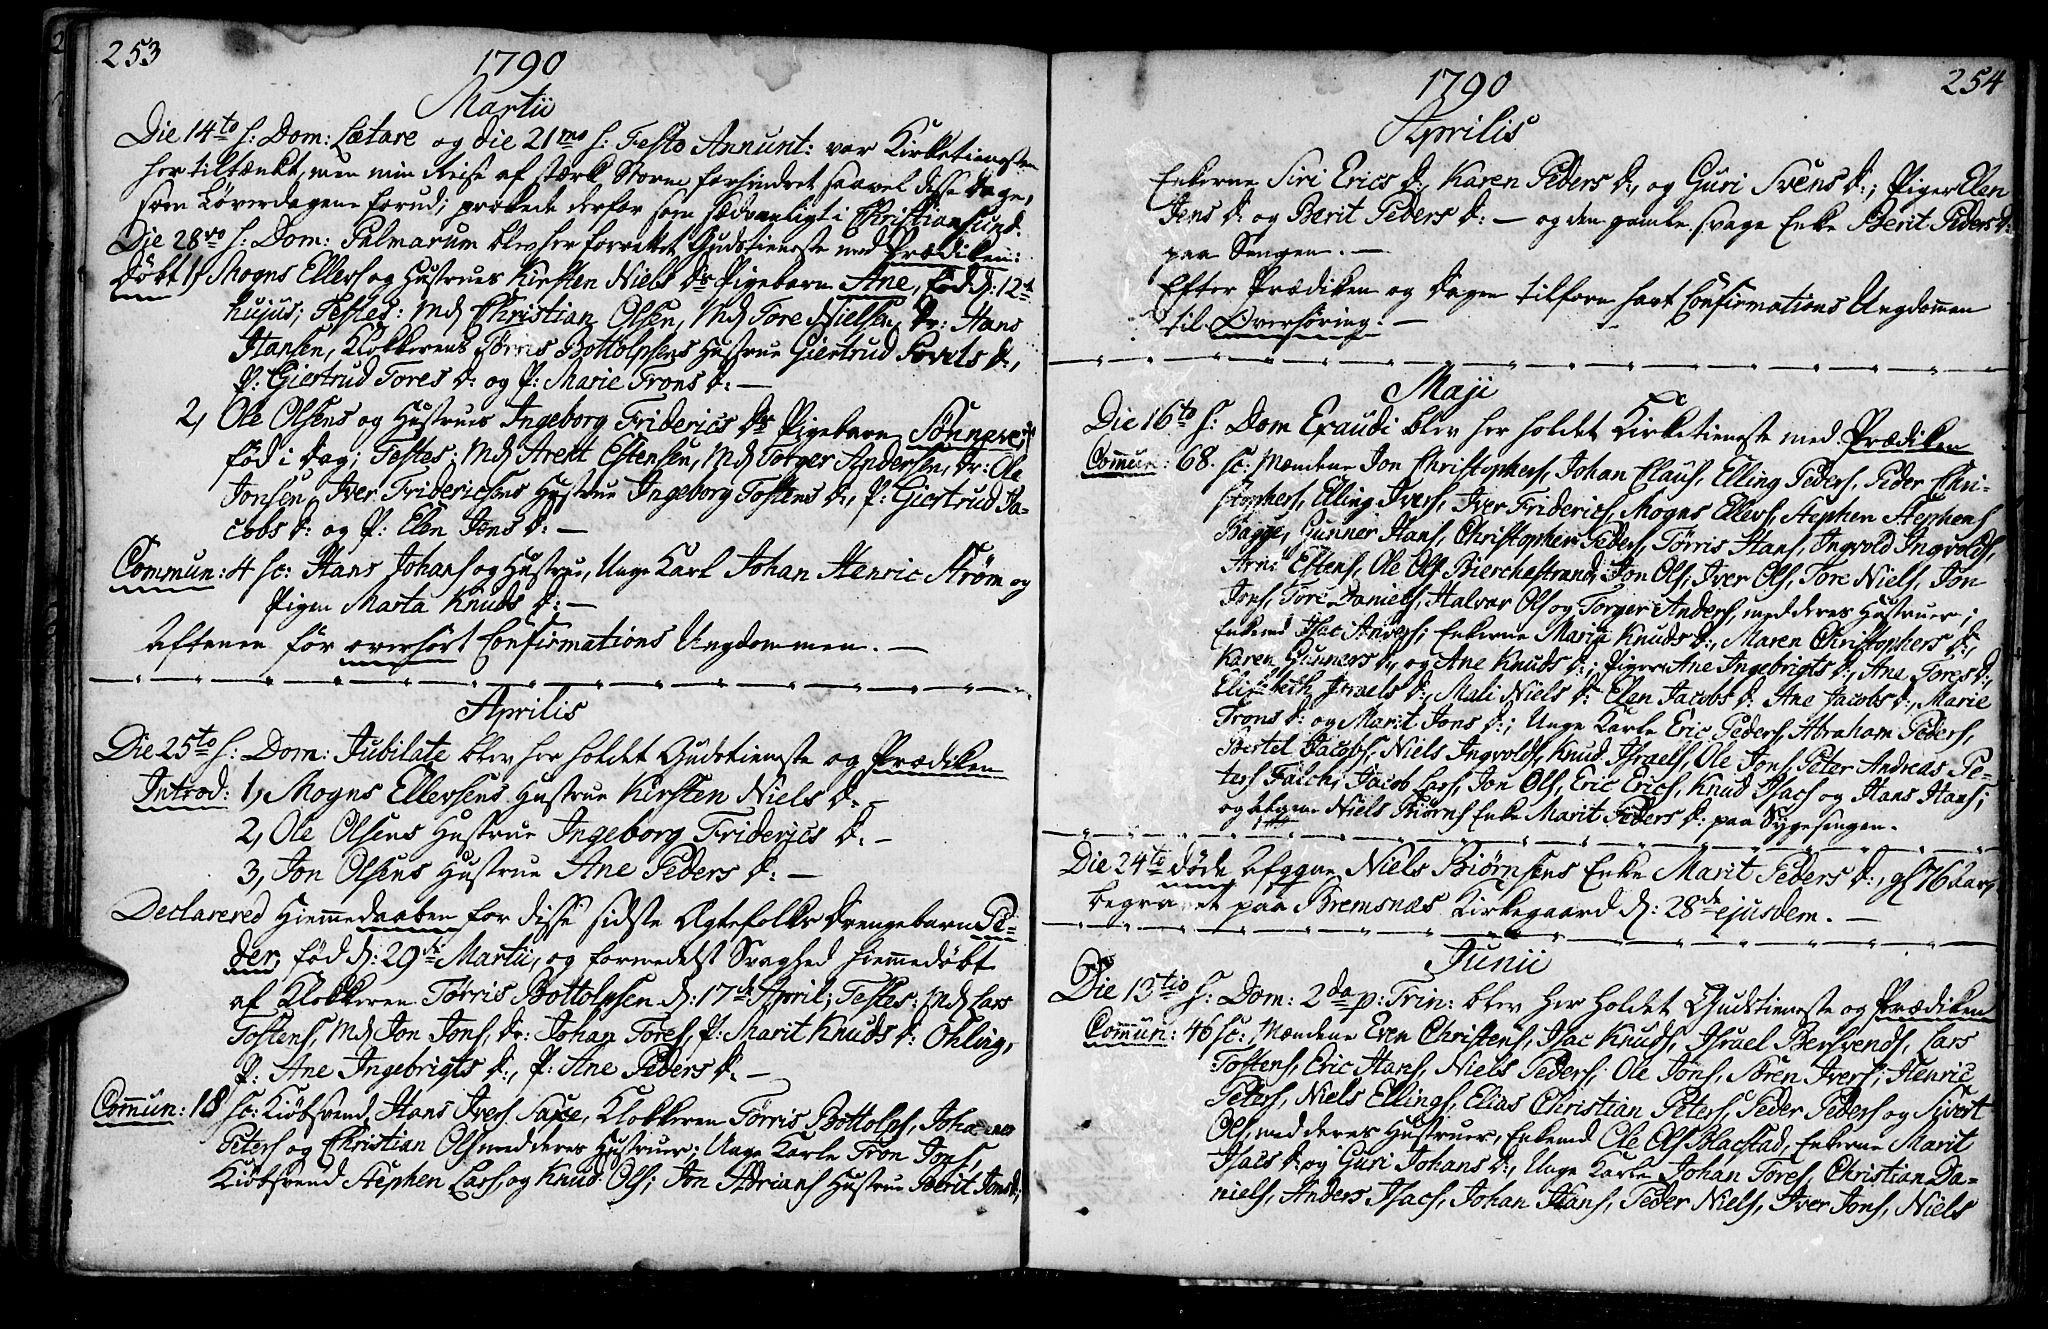 253
1790
Martii
Die 14to h: Dom: Lætare og die 21mo h: Festo Annunt: var Kirketienesten
her tiltænkt, men min Reise af stærk Storm forhindret saavel disse Dage,
som Løverdagene forud; prækede derfor som sædvanligt i Christiansund.
Die 28vo h: Dom: Palmarum blev her forrettet Gudstieneste med Prædiken:
Døbt 1, Mogns Ellers og Hustrues Kirsten Niels Dr Pigebarn Ane, fød d: 12te
hujus; Testes: Md Christian Olsen, Md Tore Nielsen, Dr: Hans
Hansen, Klokkerens Tørris Bottolphens Hustrue Giertrud Sivets D:,
P: Giertrud Tores D: og P: Marie Trons D: —
2, Ole Olsens og Hustrues Ingeborg Friderics Dr Pigebarn Sønnevei
fød i Dag; Testes: Md Arent Estensen, Md Torger Andersen, Dr: Ole
Jonsen, Iver Friderichsens Hustrue Ingeborg Tostens D:, P: Giertrud Ja-
cobs D: og P: Elen Jons D: —
Commun: 4 sc: Hans Johans og Hustrue, Unge Karl Johan Henric Strøm og
Pigen Marta Knuds D: —
Aftenen før overhørt Confirmations Ungdommen. —
Aprilis
Die 25to h: Dom: Jubilate blev her holdet Gudstieneste og Prædiken
Introd: 1, Mogns Ellersens Hustrue Kirsten Niels D: —
2, Ole Olsens Hustrue Ingeborg Friderics D: —
3, Jon Olsens Hustrue Ane Peders D: —
Declarered Hiemmedaaben for disse sidste Ægtefolks Drengebarn Pe-
der, fød d: 29de Martii, og formedelst Svaghed hiemmedøbt
af Klokkeren Tørris Bottolphsen d: 17de April; Testes: Md Lars
Tostens, Md Jon Jons, Dr: Johan Tores, P: Marit Knuds D: Ohling,
P: Ane Ingebrigts D:, P: Ane Peders D: —
Commun: 18 sc: Kiøbsvend Hans Ivers Saxe, Klokkeren Tørris Bottolphs, Johannes
Peters og Christian Ols med deres Hustruer; Unge Karle Tron Jons,
Kiøbsvend Stephen Lars, og Knud Ols; Jon Adrians Hustrue Berit Jons D:;
254
1790
Aprilis
Enkerne Siri Erics D:, Karen Peders D:, og Guri Svens D:; Piger Elen
Jens D: og Berit Peders D: — og den gamle svage Enke Berit Peders D:
paa Sengen. —
Efter Prædiken og Dagen tilforn havt Confirmations Ungdommen
til Overhøring. —
Maji
Die 16to h: Dom Exaudi blev her holdet Kirketieneste med Prædiken
Commun: 68. sc: Mændene Jon Christophers, Johan Claus, Elling Peders, Peder Chri-
stophers, Elling Ivers, Iver Friderics, Mogns Ellers, Stephen Stephens
Bagge, Gunner Hans, Christopher Peders, Tørris Hans, Ingvold Ingvolds,
Arnt Estens, Ole Ols Bierchestrand, Jon Ols, Iver Ols, Tore Niels, Jon
Jons, Tore Daniels, Halvar Ols og Torger Anders, med deres Hustruer;
Enkemd Isac Anders; Enkerne Marit Knuds D:, Maren Christophers D:,
Karen Gunners D:, og Ane Knuds D:; Pigerne Ane Ingebrigts D:, Ane Tores D:,
Elisabeth Israels D:, Mali Niels D: Elen Jacobs D: Ane Jacobs D:, Marie
Trons D: og Marit Jons D:; Unge Karle Eric Peders, Abraham Peders,
Bertel Jacobs, Niels Ingvolds, Knud Israels, Ole Jons, Peter Andreas Pe-
ters Falch, Jacob Lars, Jon Ols, Eric Erics, Knud Isacs og Hans Hans;
og afgne Niels Biørns Enke Marit Peders D: paa Sygesengen.
Die 24to døde Afgagne Niels Biørnsens Enke Marit Peders D:, gl 76 aar,
begravet paa Bremsnæs Kirkegaard d: 28de ejusdem. —
Junii
Die 13tio h: Dom: 2da p: Trin: blev her holdet Gudstieneste og Prædiken
Commun: 46 sc: Mændene Even Christens, Isac Knuds, Israel Bersvends, Lars
Tostens, Eric Hans, Niels Peders, Ole Jons, Søren Ivers, Henric
Peters, Niels Ellings, Elias Christian Peters, Peder Peders og Sivert
Ols, med deres Hustruer, Enkemd Ole Ols Blacstad, Enkerne Marit
Isacs D: og Guri Johans D:, Unge Karle Johan Tores, Christian Da-
niels, Anders Isacs, Johan Hans, Peder Niels, Iver Jons, Niels